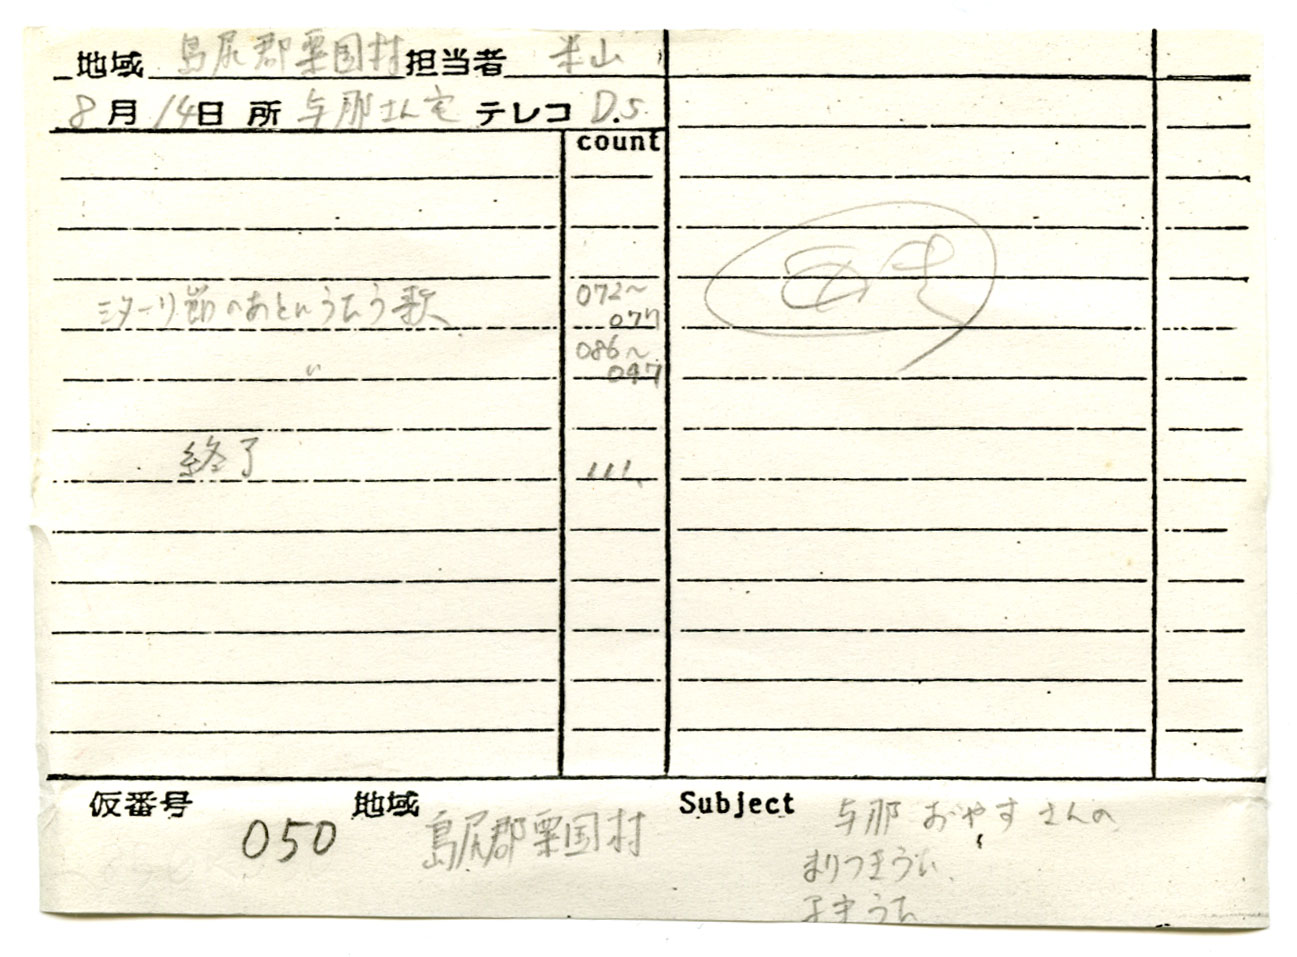 地域 島尻郡粟国村 担当者 米山
8月14日 所 与那さん宅 テレコ D.S.
count
ミターリ節のあとにうたう歌 072〜077
〃 086〜097
終了 111
仮番号 050 地域 島尻郡粟国村 Subject 与那おやすさんの
まりつきうた、
子守うた